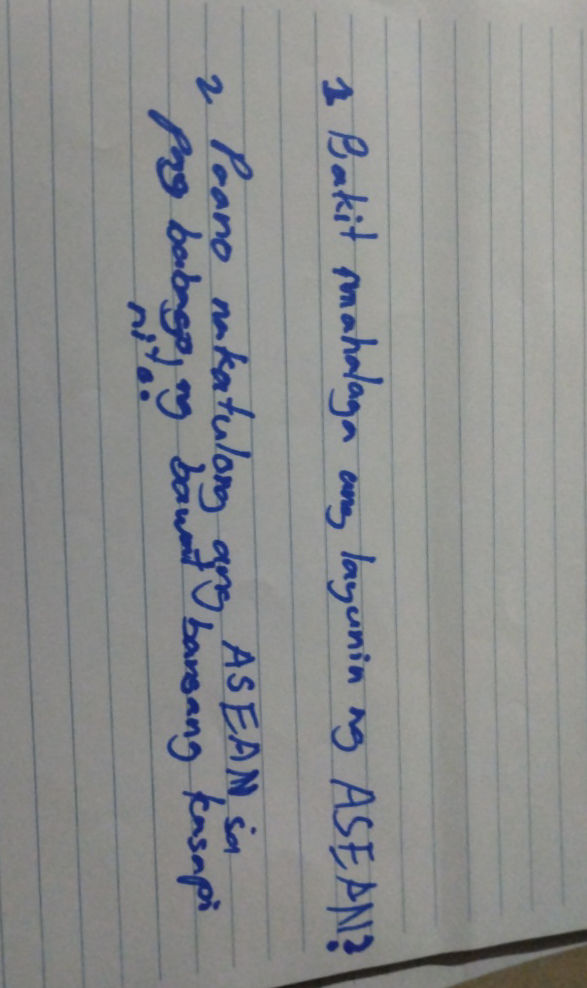 1 Bakit mahalaga ang layunin ng ASEAN?
2. Paano nakatulong ang ASEAN sa
pag babago ng bawat bansang kasapi
nito?